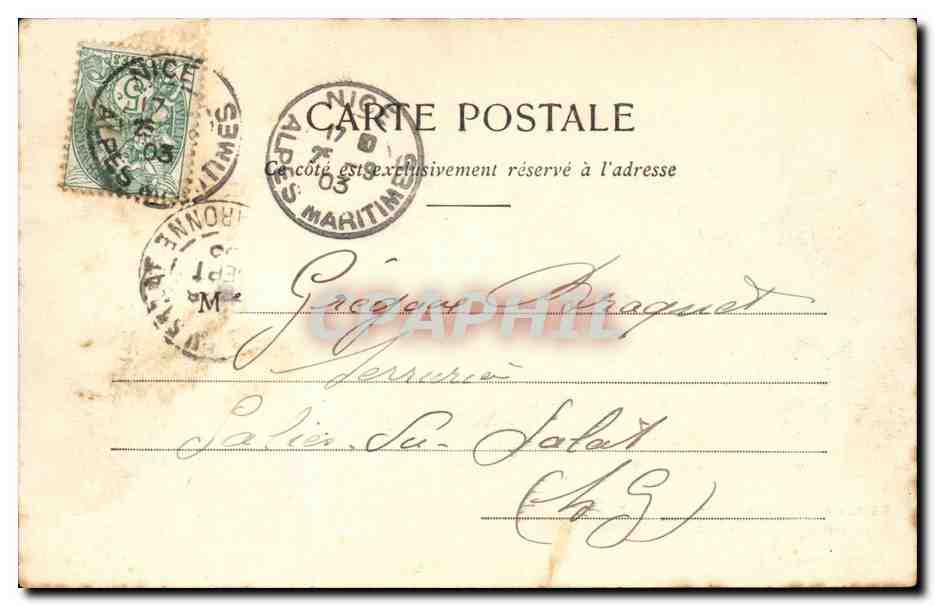 NICE
17
25
03
ALPES MARITIMES
NICE
17
25 -9
03
ALPES MARITIMES
CARTE POSTALE
Ce côté est exclusivement réservé à l'adresse
SEPT
M Grégoire Braquet
CPAPHIL
Serrurié
Salies-Su-Salat
(h G)